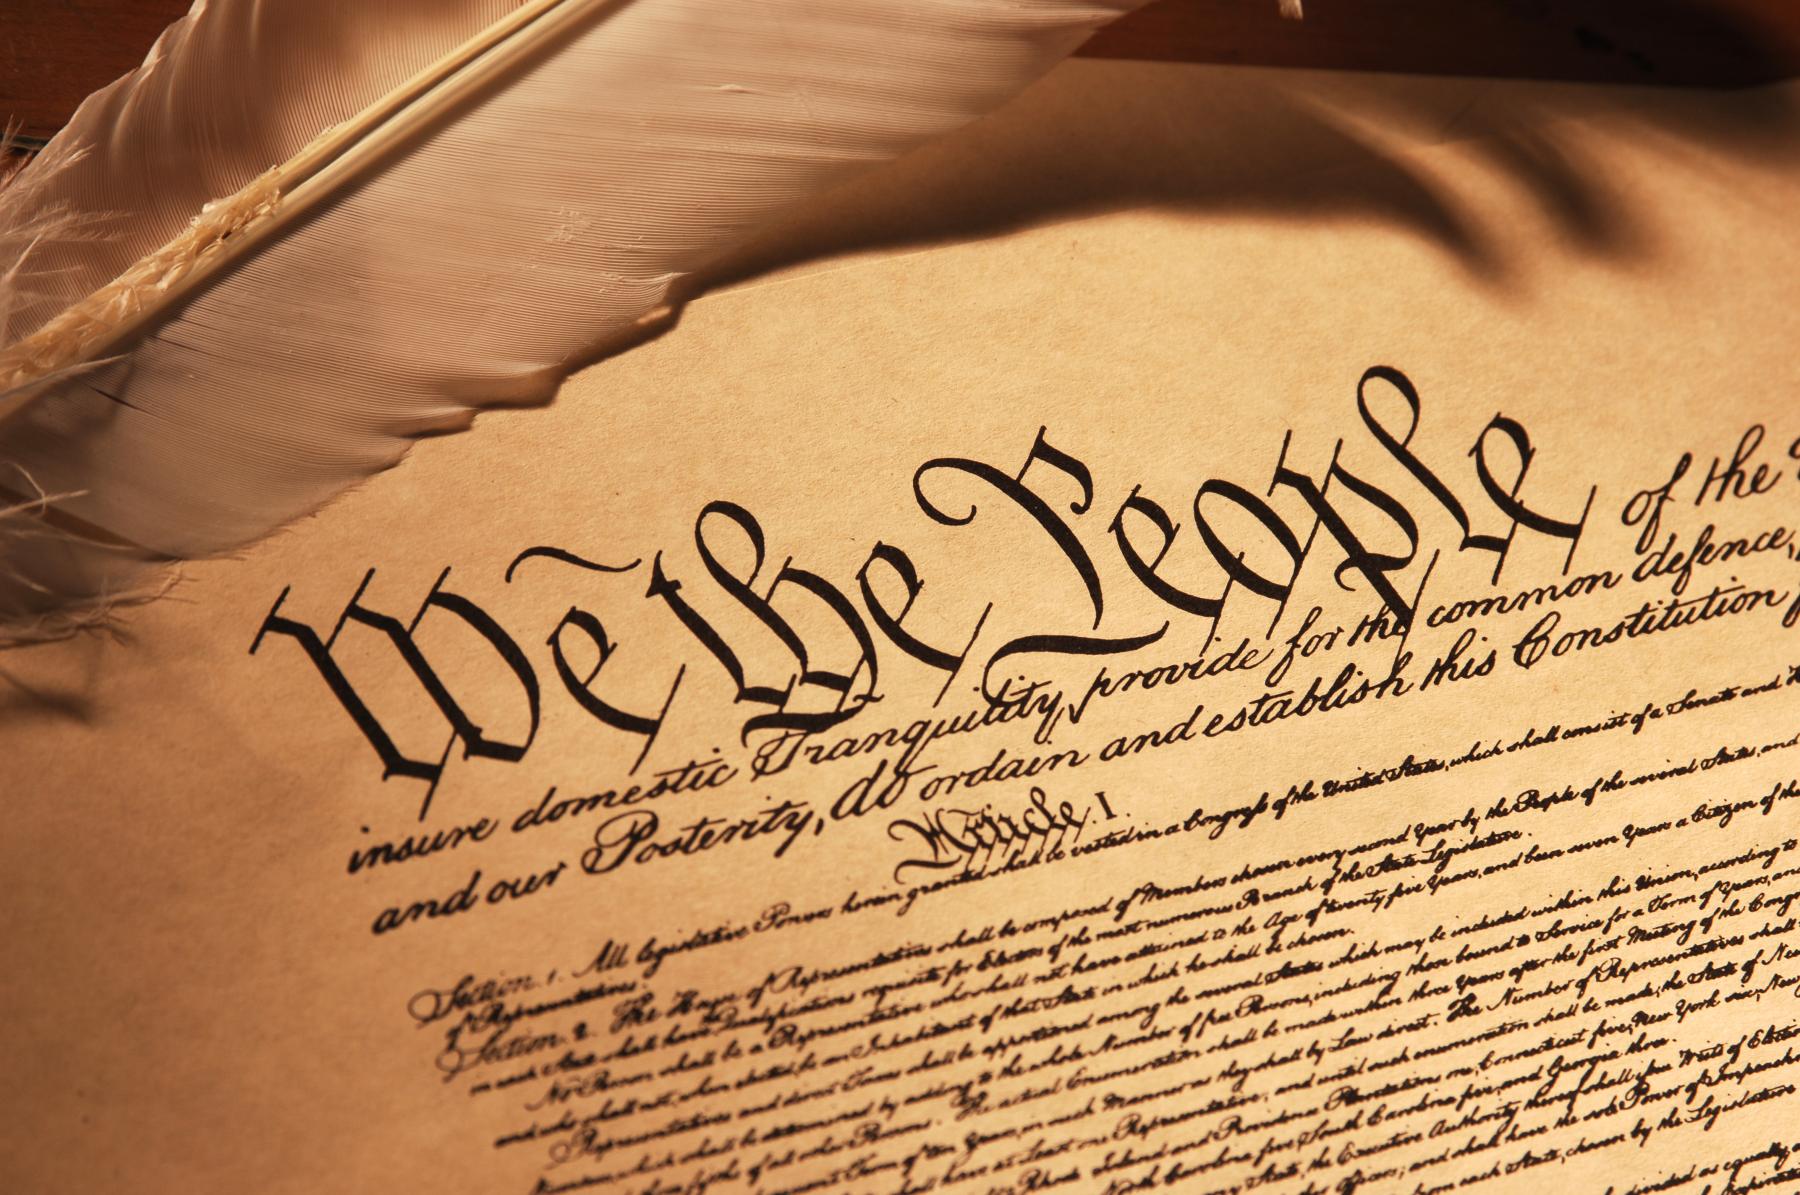 We the People of the
insure domestic Tranquility, provide for the common defence,
and our Posterity, do ordain and establish this Constitution
Article. I.
Section. 1. All legislative Powers herein granted shall be vested in a Congress of the United States, which shall consist of a Senate and
of Representatives.
Section. 2. The House of Representatives shall be composed of Members chosen every second Year by the People of the several States, and
in each State shall have Qualifications requisite for Electors of the most numerous Branch of the State Legislature.
No Person shall be a Representative who shall not have attained to the Age of twenty five Years, and been seven Years a Citizen of the
and who shall not, when elected, be an Inhabitant of that State in which he shall be chosen.
Representatives and direct Taxes shall be apportioned among the several States which may be included within this Union, according to
which shall be determined by adding to the whole Number of free Persons, including those bound to Service for a Term of Years, and
of all other Persons. The actual Enumeration shall be made within three Years after the first Meeting of the
Term of ten Years, in such Manner as they shall by Law direct. The Number of Representatives shall
shall have at Least one Representative; and until such enumeration shall be made, the State of New
Rhode Island and Providence Plantations one, Connecticut five, New York six, New
North Carolina five, South Carolina five, and Georgia three.
any State, the Executive Authority thereof shall issue Writs of Election
other Officers; and shall have the sole Power of Impeachment
from each State, chosen by the Legislature
divided as equally